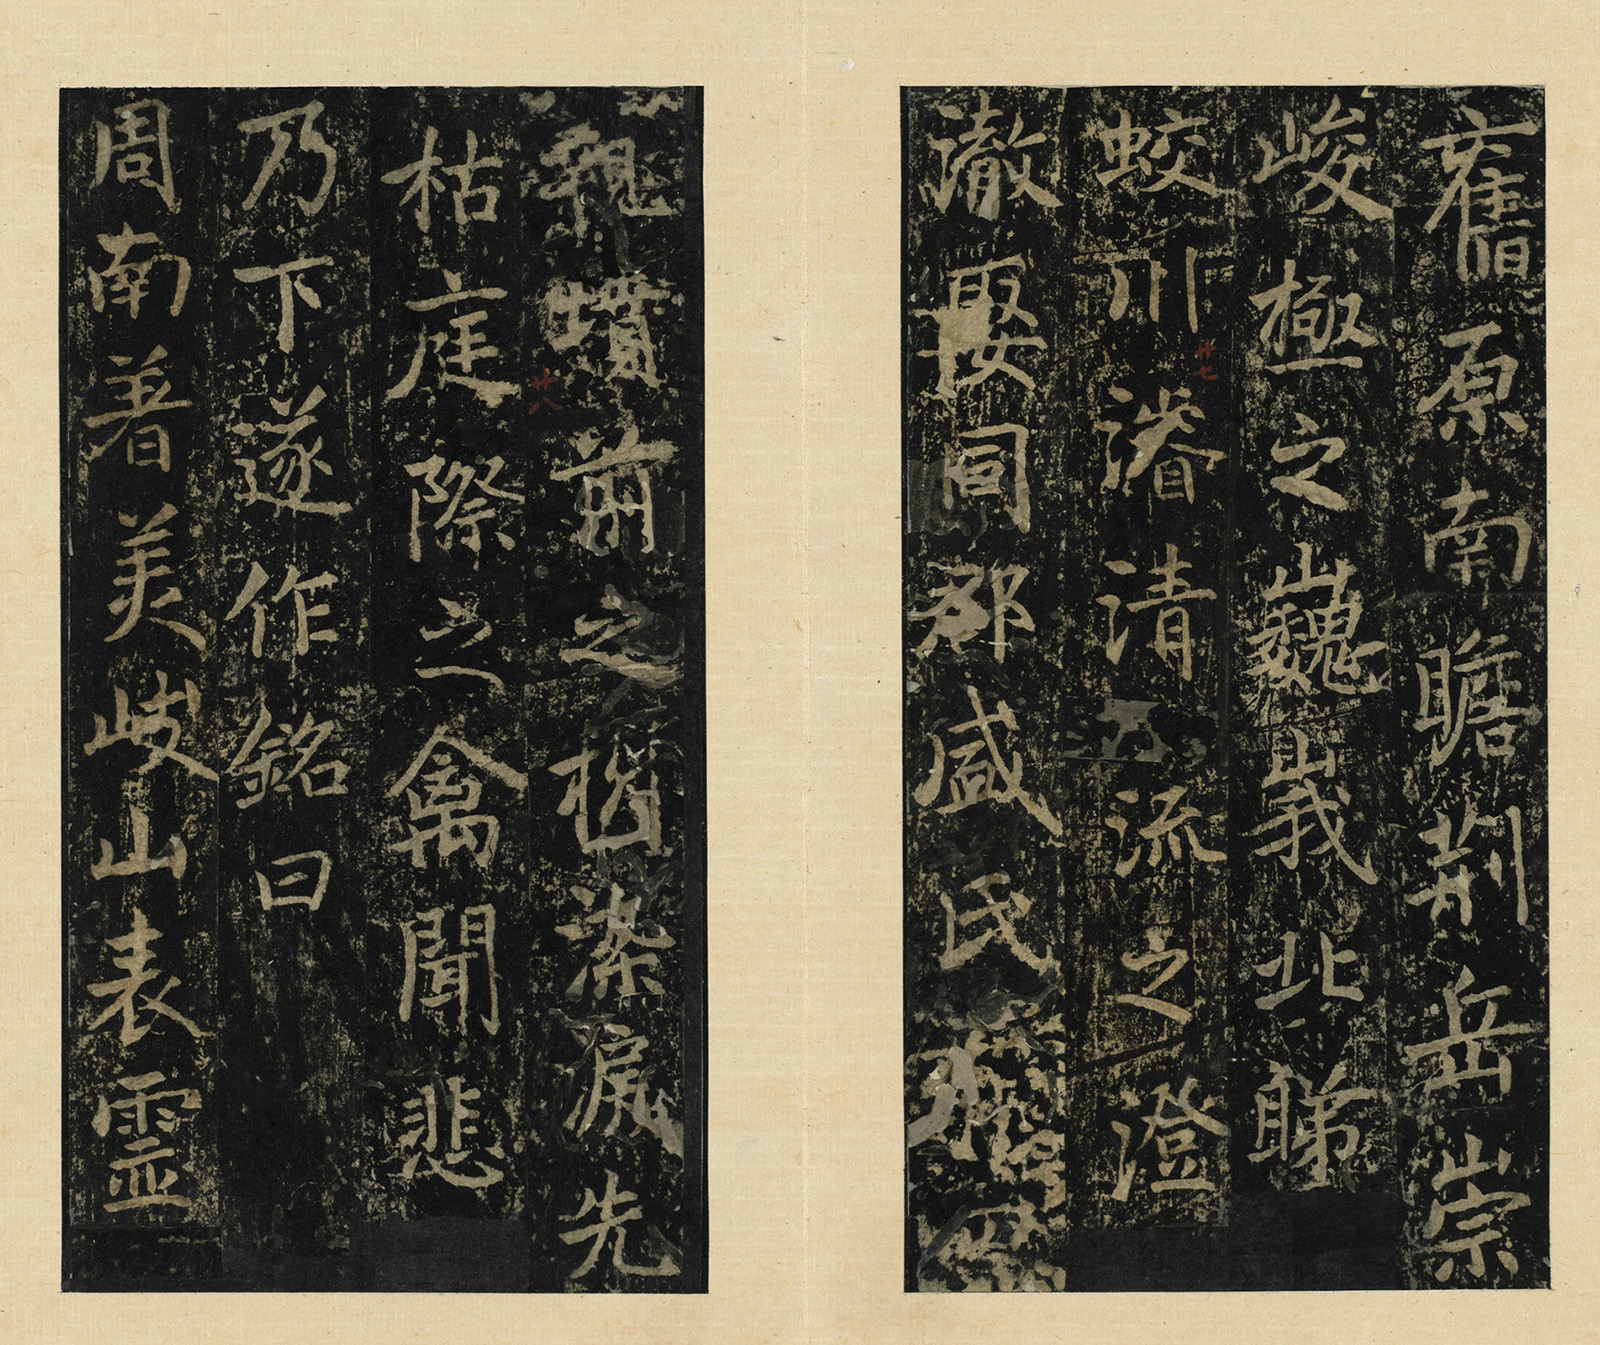 舊原南瞻荊岳崇
峻極之巍峩北睇
蛟川濬清流之澄
澈娶同郡盛氏有四
廿七
親墳前之染淚先
廿八
枯庭際之禽聞悲
乃下遂作銘曰
周南著美岐山表靈